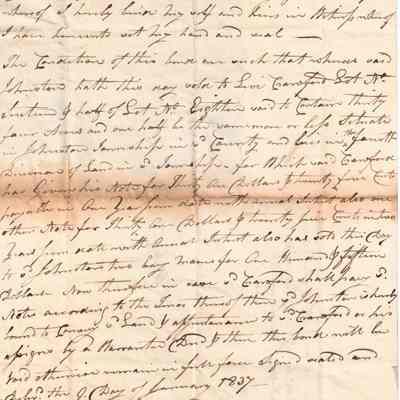 whereof I hereby bind my self and heirs in Witness whereof
I have hereunto set my hand and seal —
The Condition of this bond are such that whereas said
Johnston hath this day sold to Levi Crawford Lot No
& half of Lot No Eighteen said to Contain thirty
four Acres and one half be the same more or less Situate
in Johnston Township in sd County and lies in the fourth
Division of Land in sd Township – for Which said Crawford
has Given his Note for Thirty One Dollars & twenty five Cents
payable in One Year from date with annual Interest also one
other Note for Thirty One Dollars & twenty five Cents in two
Years from date with Annual Interest also has sold this Day
to sd Johnston two bay Mares for One Hundred & fifteen
Dollars – Now therefore in case sd Crawford shall pay sd
Notes according to the Tenor thereof then sd Johnston is hereby
bound to Convey sd Land & appurtenance to sd Crawford or his
assigns by a Warrantee Deed & then this bond will be
void otherwise remain in full force Signed sealed and
the 9 Day of January 1837